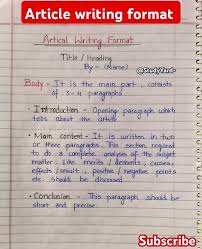 Article writing format
Artical Writing Format
Title / Heading
By - (Name)
@StudyYard-
Body - It is the main part, consists
of 3-4 paragraphs.
• Introduction - Opening paragraph which
tells about the article
• Main content - It is written in two
or three paragraphs. This section required
to do a complete analysis of the subject
matter like merits / demerits, causes
effects / result, positive / negative points
etc should be discussed.
• Conclusion - This paragraph should be
short and precise.
Subscribe